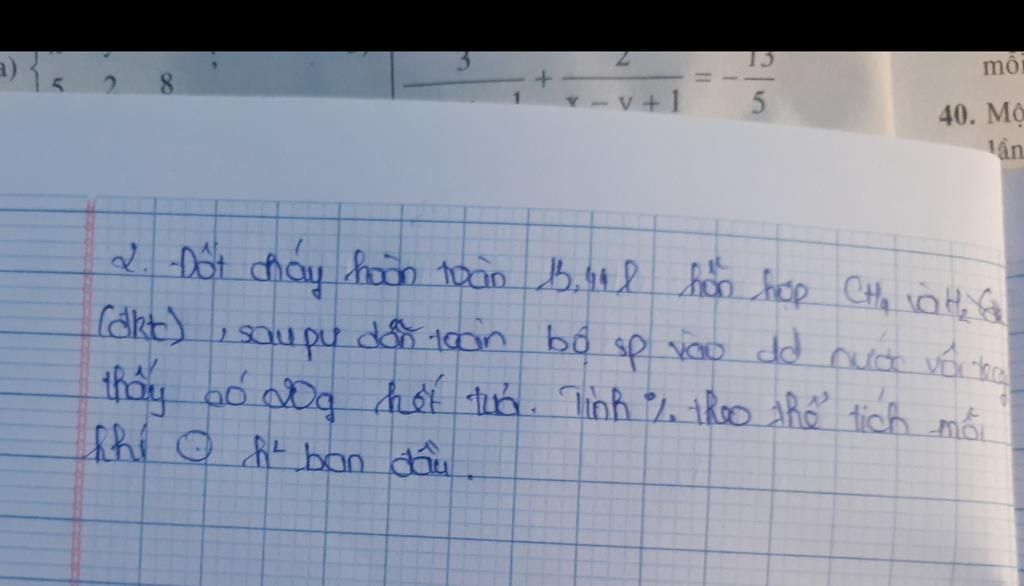 a) { 5 2 8 ; 3 1 + 2 / x - y + 1 = - 13 / 5
mỗi
40. Mộ
lần
2. Đốt cháy hoàn toàn 13,44l hỗn hợp CH4 và H2
(đktc), sau pư dẫn toàn bộ sp vào dd nước vôi trg
thấy có 20g kết tủa. Tính % theo thể tích mỗi
khí h2 ban đầu.